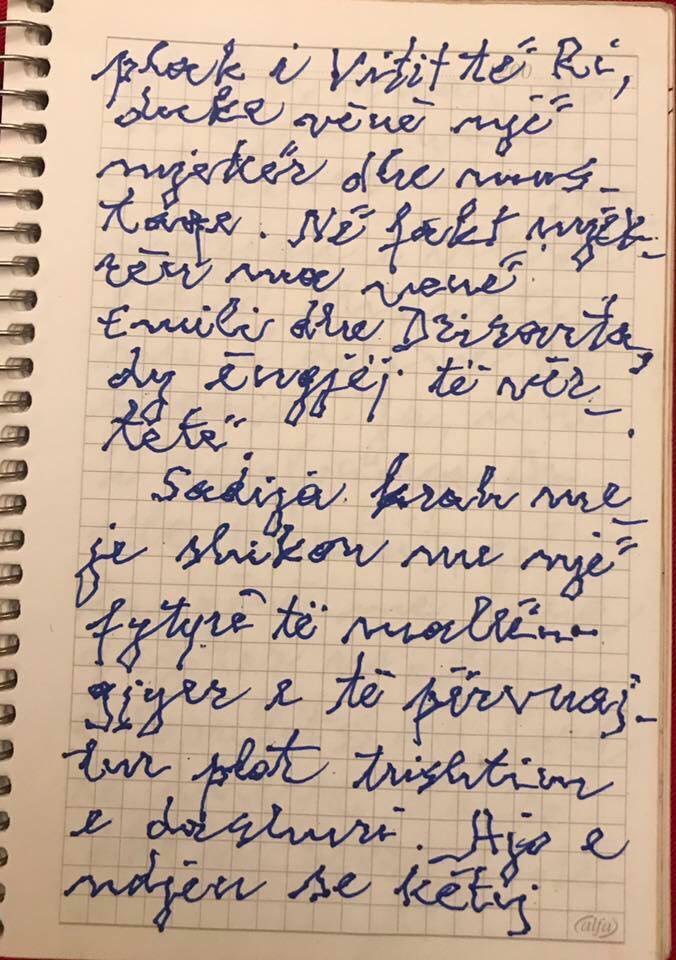 plak i Vitit të Ri,
duke vënë një
mjekër dhe mus-
taqe. Në fakt mjek-
rën ma vënë
Emili dhe Drizarta,
dy ëngjëj të vër-
tetë.
Sadija krah me-
je shikon me një
fytyrë të mallën-
gjyer e të përvuaj-
tur plot trishtim
e dashuri. Ajo e
ndjen se këtij
alfa